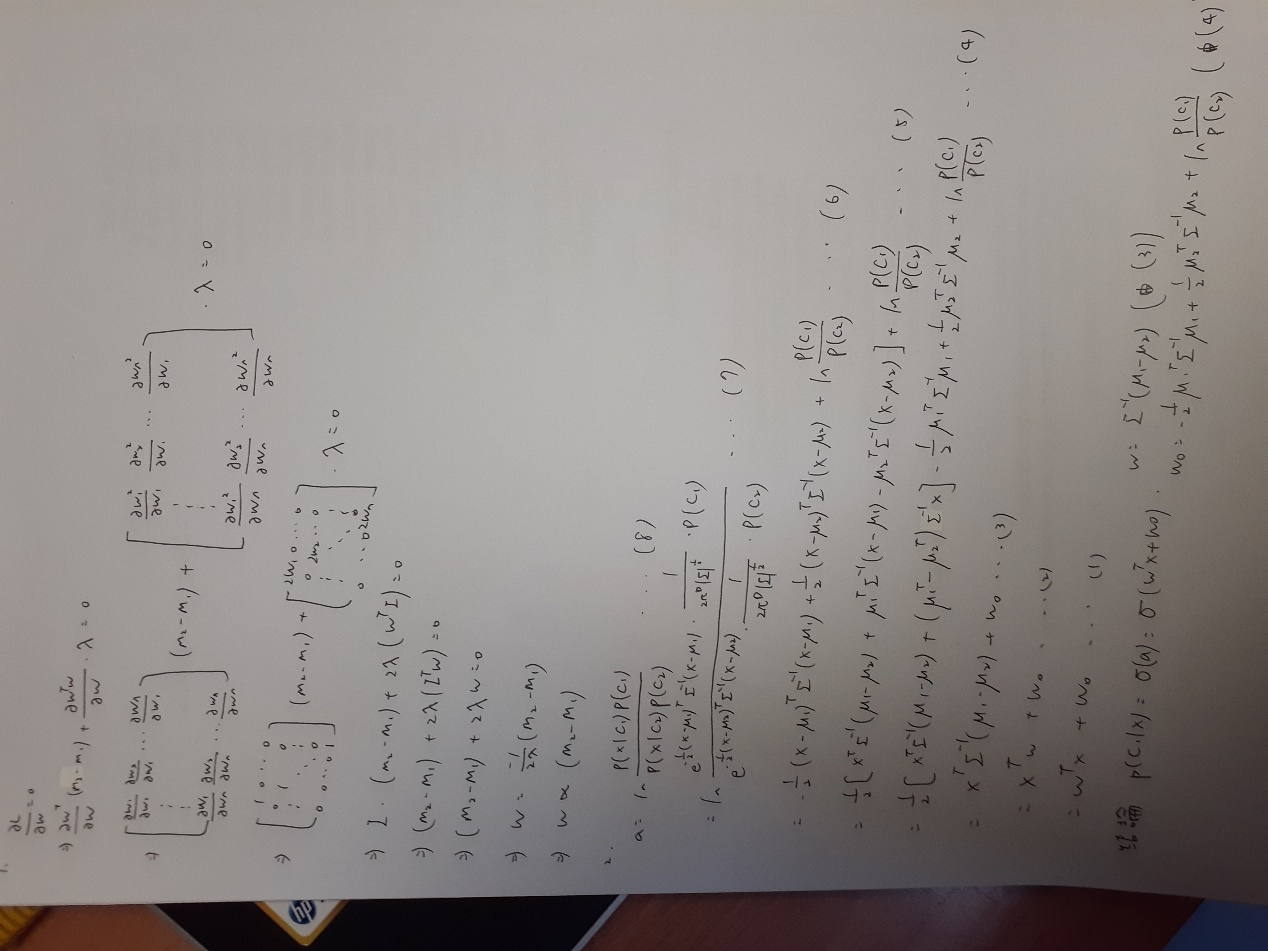 1.
∂L/∂w = 0
⇒ ∂wᵀ/∂w (m₂-m₁) + ∂wᵀw/∂w · λ = 0
⇒ [ ∂w₁/∂w₁ ∂w₂/∂w₁ ... ∂wₙ/∂w₁ ; ⋮ ; ∂w₁/∂wₙ ∂w₂/∂wₙ ... ∂wₙ/∂wₙ ] (m₂-m₁) + [ ∂w₁²/∂w₁ ∂w₂²/∂w₁ ... ∂wₙ²/∂w₁ ; ⋮ ; ∂w₁²/∂wₙ ∂w₂²/∂wₙ ... ∂wₙ²/∂wₙ ] · λ = 0
⇒ [ 1 0 ... 0 ; 0 1 ... 0 ; ⋮ ; 0 0 ... 0 1 ] (m₂-m₁) + [ 2w₁ 0 ... 0 ; 0 2w₂ ... 0 ; ⋮ ; 0 ... 0 2wₙ ] · λ = 0
⇒ I · (m₂-m₁) + 2λ(wᵀI) = 0
⇒ (m₂-m₁) + 2λ(Iᵀw) = 0
⇒ (m₂-m₁) + 2λw = 0
⇒ w = -1/2λ (m₂-m₁)
⇒ w ∝ (m₂-m₁)
2.
a = ln P(x|C₁)P(C₁) / P(x|C₂)P(C₂) ... (8)
= ln e^{-½(x-μ₁)ᵀΣ⁻¹(x-μ₁)} · 1/(2πᴰ|Σ|^½) · P(C₁) / e^{-½(x-μ₂)ᵀΣ⁻¹(x-μ₂)} · 1/(2πᴰ|Σ|^½) · P(C₂) ... (7)
= -½(x-μ₁)ᵀΣ⁻¹(x-μ₁) + ½(x-μ₂)ᵀΣ⁻¹(x-μ₂) + ln P(C₁)/P(C₂) ... (6)
= ½[xᵀΣ⁻¹(μ₁-μ₂) + μ₁ᵀΣ⁻¹(x-μ₁) - μ₂ᵀΣ⁻¹(x-μ₂)] + ln P(C₁)/P(C₂) ... (5)
= ½[xᵀΣ⁻¹(μ₁-μ₂) + (μ₁ᵀ-μ₂ᵀ)Σ⁻¹x] - ½μ₁ᵀΣ⁻¹μ₁ + ½μ₂ᵀΣ⁻¹μ₂ + ln P(C₁)/P(C₂) ... (4)
= xᵀΣ⁻¹(μ₁-μ₂) + w₀ ... (3)
= xᵀw + w₀ ... (2)
= wᵀx + w₀ ... (1)
結論 P(C₁|x) = σ(a) = σ(wᵀx+w₀). w = Σ⁻¹(μ₁-μ₂) (由(3))
w₀ = -½μ₁ᵀΣ⁻¹μ₁ + ½μ₂ᵀΣ⁻¹μ₂ + ln P(C₁)/P(C₂) (由(4)
hp